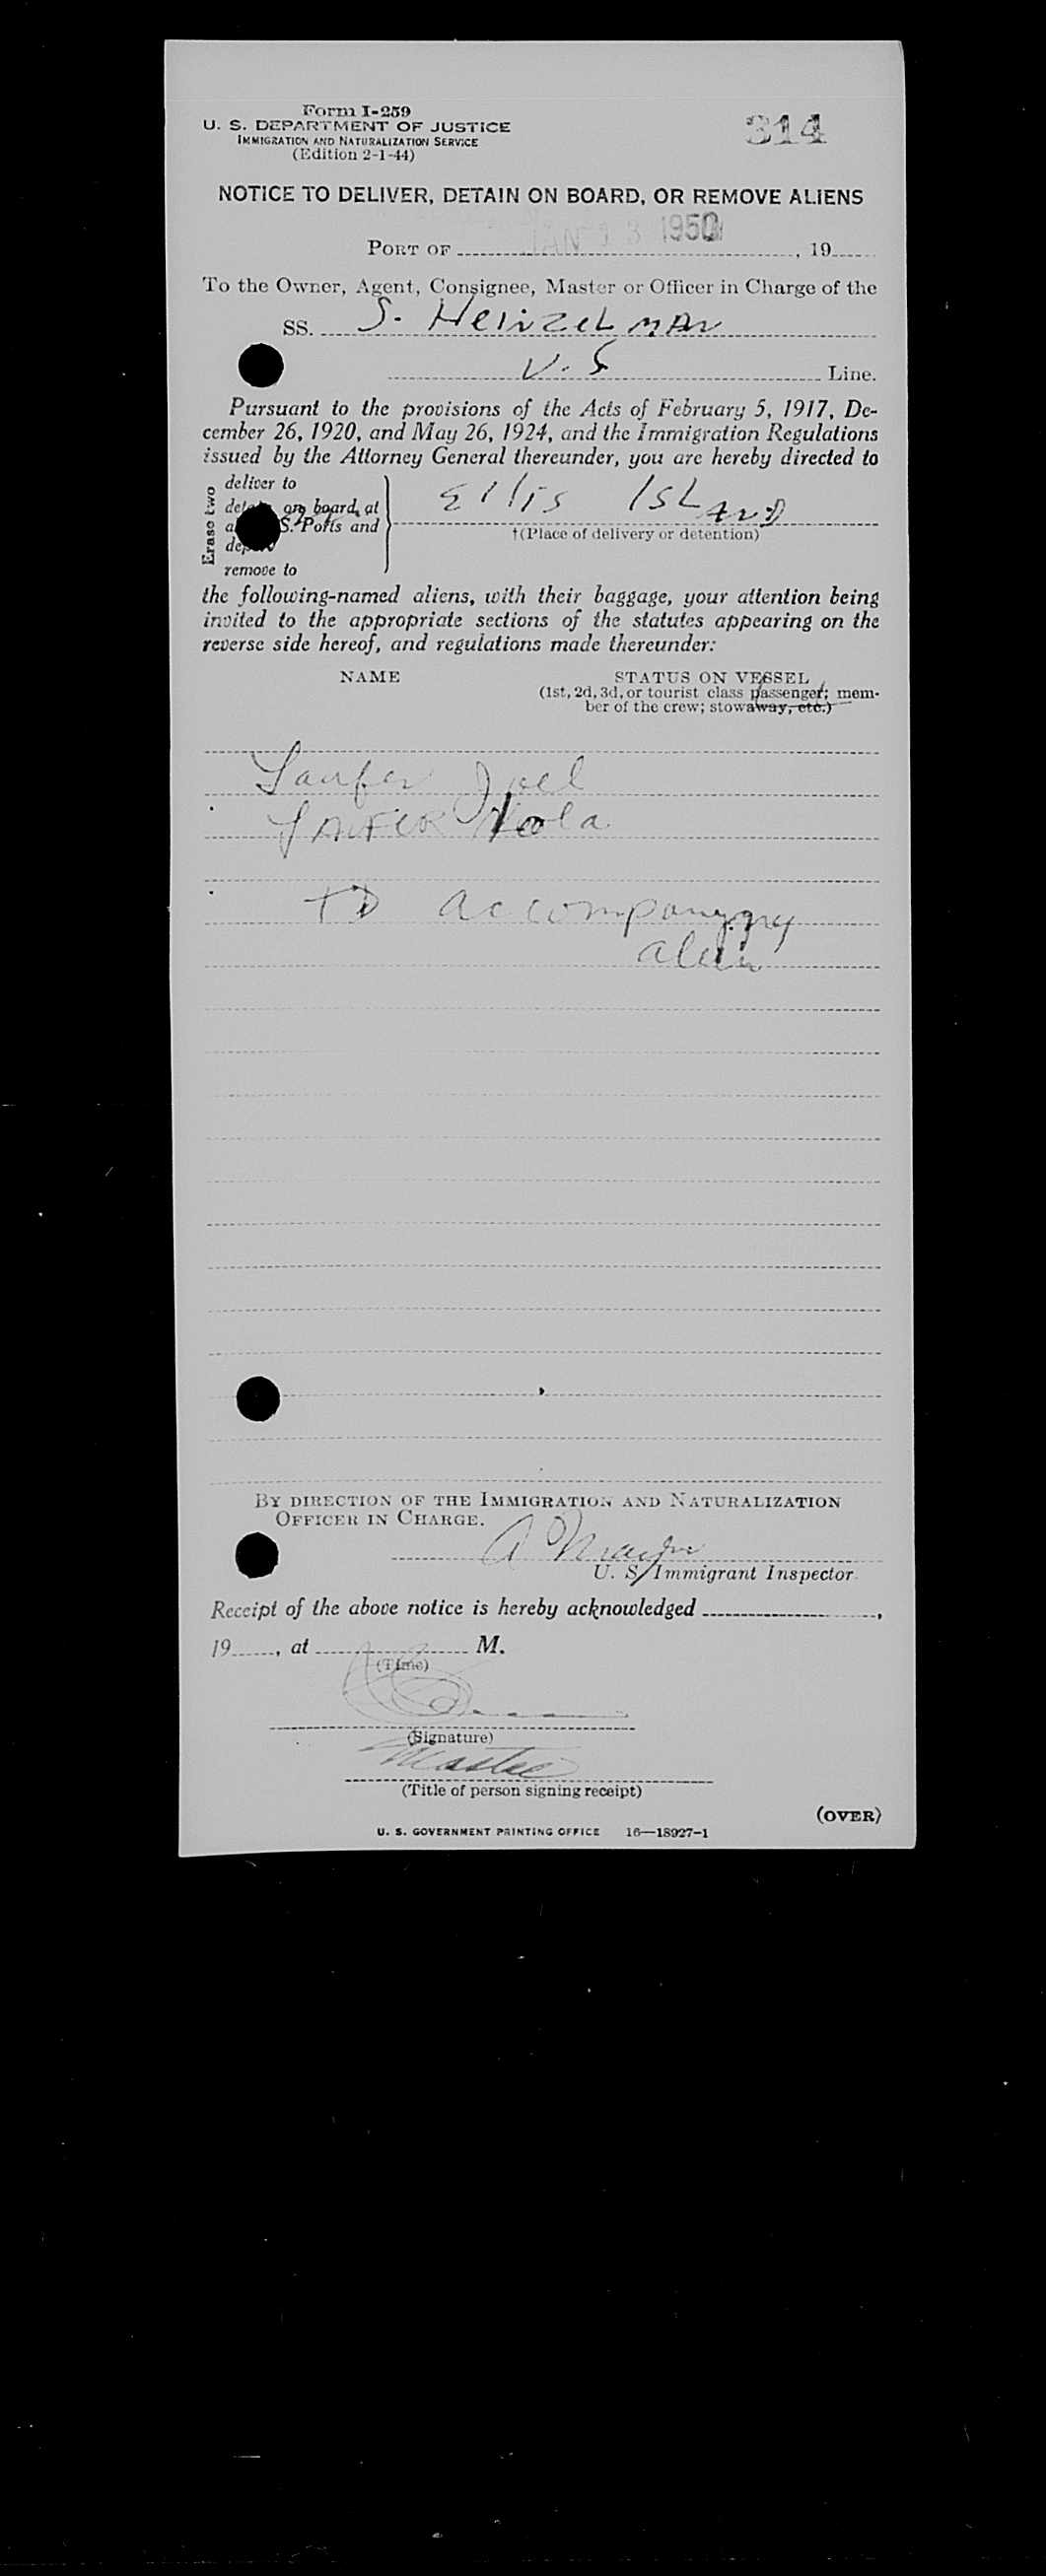 Form I-259
U. S. DEPARTMENT OF JUSTICE
IMMIGRATION AND NATURALIZATION SERVICE
(Edition 2-1-44)
314
NOTICE TO DELIVER, DETAIN ON BOARD, OR REMOVE ALIENS
PORT OF JAN 1950, 19
To the Owner, Agent, Consignee, Master or Officer in Charge of the
SS. S. HeinzeLMAN
U.S Line.
Pursuant to the provisions of the Acts of February 5, 1917, De-
cember 26, 1920, and May 26, 1924, and the Immigration Regulations
issued by the Attorney General thereunder, you are hereby directed to
Erase two
deliver to
on board, at
S. Ports and
remove to
Ellis ISLAND
†(Place of delivery or detention)
the following-named aliens, with their baggage, your attention being
invited to the appropriate sections of the statutes appearing on the
reverse side hereof, and regulations made thereunder:
NAME STATUS ON VESSEL
(1st, 2d, 3d, or tourist class passenger; mem-
ber of the crew; stowaway, etc.)
Laufer Joel
LAUFER
TD accompanying
alien
BY DIRECTION OF THE IMMIGRATION AND NATURALIZATION
OFFICER IN CHARGE.
A
U. S. Immigrant Inspector.
Receipt of the above notice is hereby acknowledged ,
19 , at M.
(Time)
(Signature)
Master
(Title of person signing receipt)
(OVER)
U. S. GOVERNMENT PRINTING OFFICE 16—18927-1